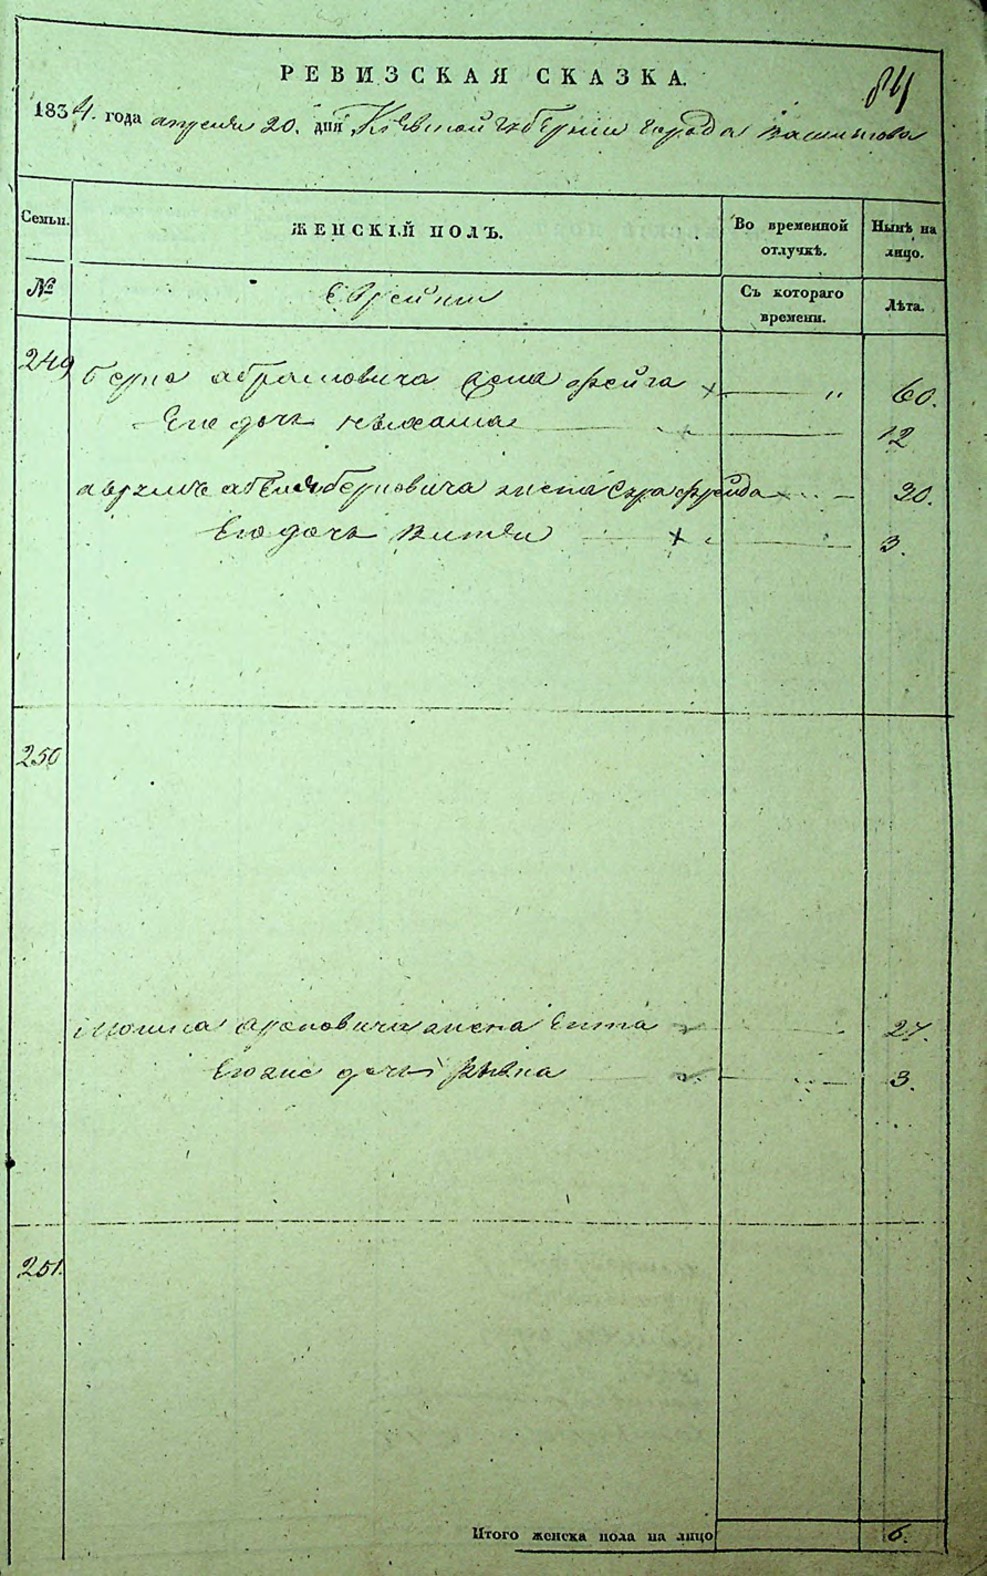 84
РЕВИЗСКАЯ СКАЗКА.
1834. года апреля 20. дня Кіевской губерніи города Василькова
Семьи. ЖЕНСКІЙ ПОЛЪ. Во временной отлучкѣ. Нынѣ на лицо.
№ Еврейки Съ котораго времени. Лѣта.
249 Берка Абрамовича жена Фейга 60.
Его дочь Нехама 12
Берковича жена Сура Фрейда 30.
Его дочь 3.
250
Ароновича жена Ента 27.
Его же дочь Ривка 3.
251.
Итого женска пола на лицо 6.